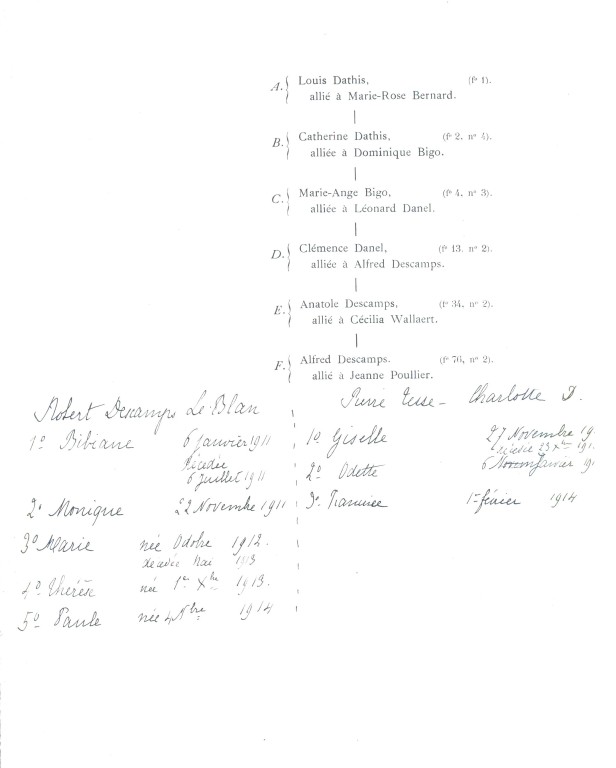 A. Louis Dathis, (fº 1).
allié à Marie-Rose Bernard.
B. Catherine Dathis, (fº 2, nº 4).
alliée à Dominique Bigo.
C. Marie-Ange Bigo, (fº 4, nº 3).
alliée à Léonard Danel.
D. Clémence Danel, (fº 13, nº 2).
alliée à Alfred Descamps.
E. Anatole Descamps, (fº 34, nº 2).
allié à Cécilia Wallaert.
F. Alfred Descamps. (fº 76, nº 2).
allié à Jeanne Poullier.
Robert Descamps Le Blan
1º Bibiane 6 Janvier 1911
décédée
6 Juillet 1911
2º Monique 22 Novembre 1911
3º Marie née Octobre 1912.
décédée Mai 1913
4º Thérèse née 1er Xbre 1913.
5º Paule née 4 Nbre 1914
Pierre – Charlotte D.
1º Giselle 27 Novembre 19
décédée 23 Xbre 191
2º Odette 6 Novem Janvier 19
3º 1er février 1914